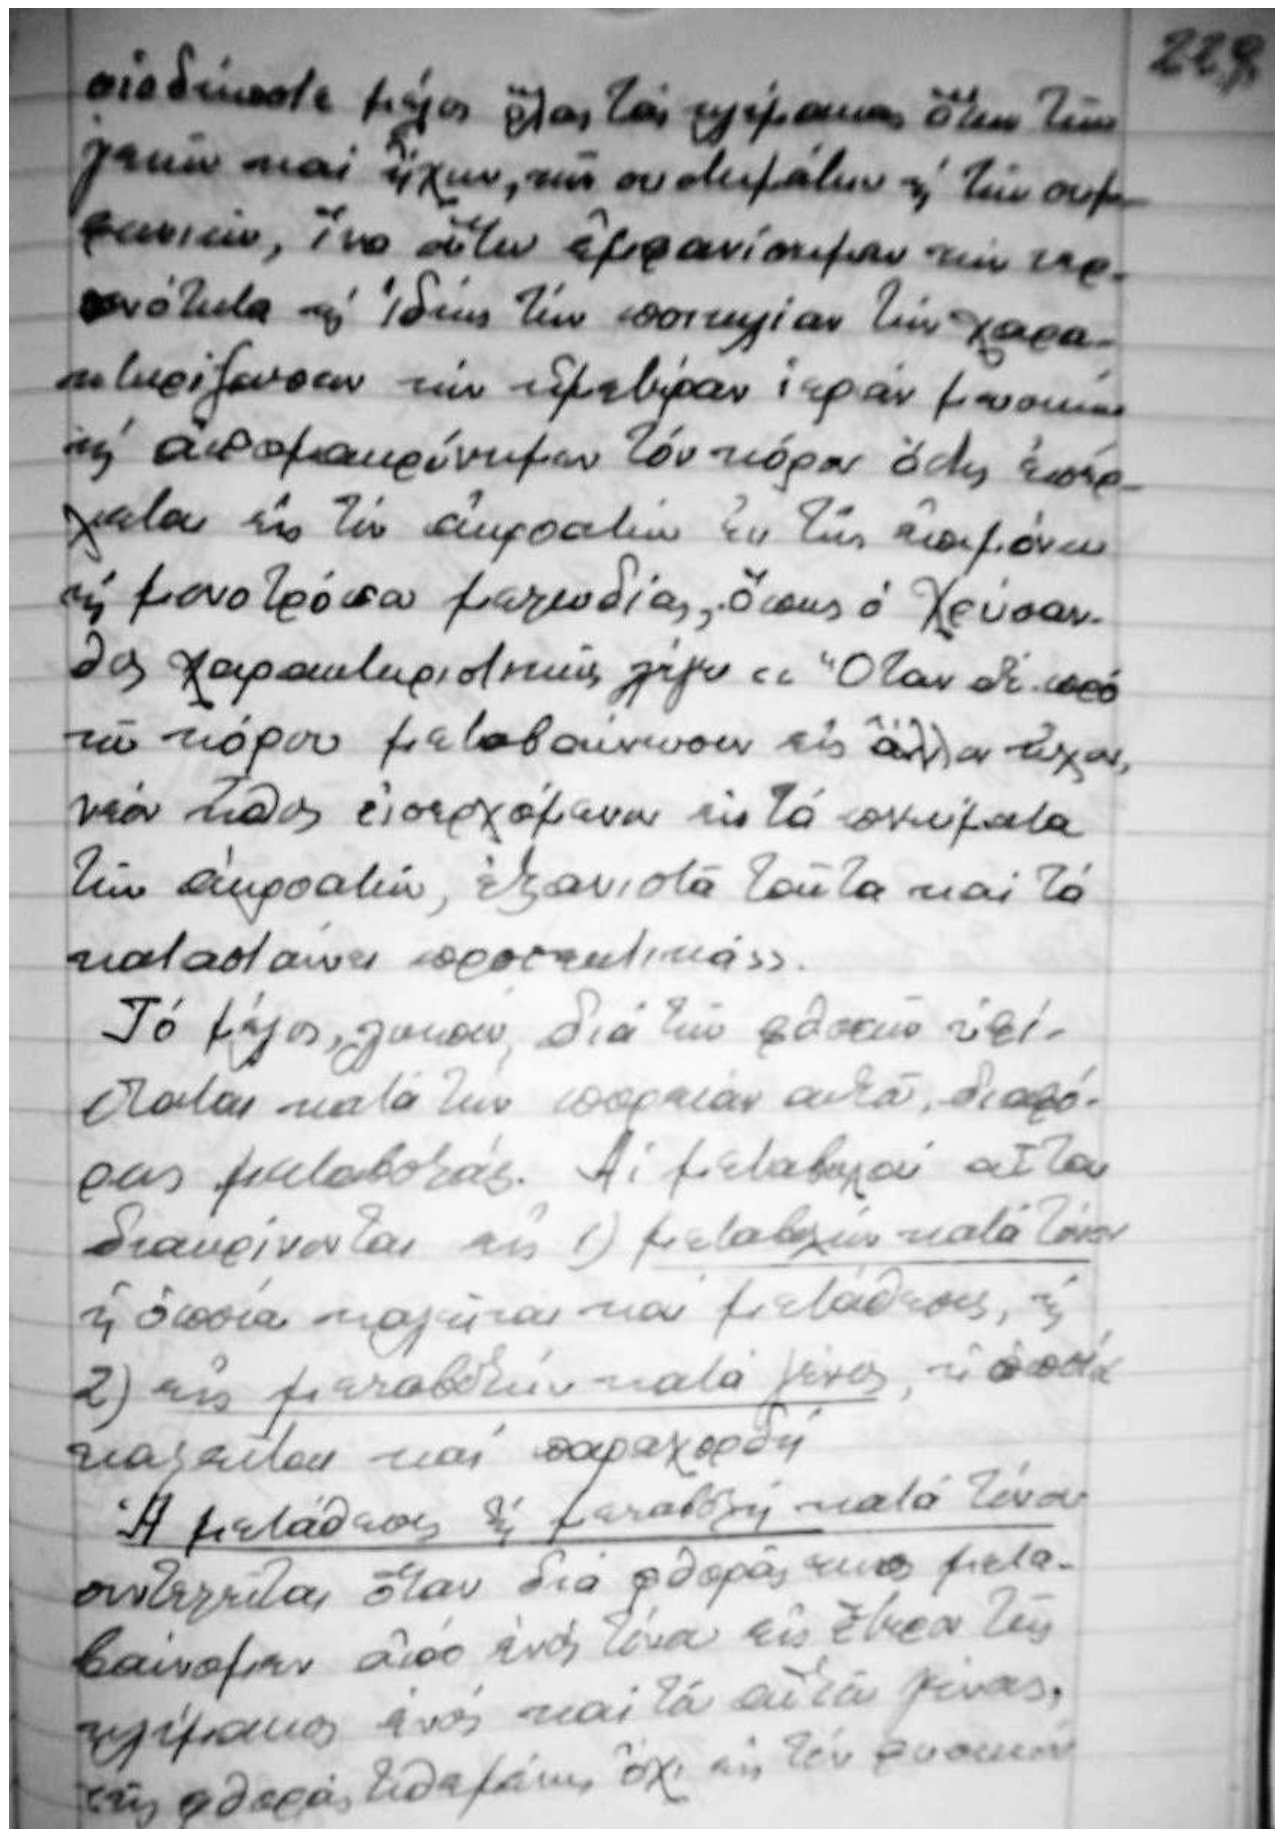 229.
οἱοδήποτε μέλος ὅλας τὰς κλίμακας ὅλων τῶν
γενῶν καὶ ἤχων, τῶν συστημάτων ἢ τῶν συμ-
φωνιῶν, ἵνα οὕτω ἐμφανίσωμεν τὴν τερ-
πνότητα ἢ ἰδίως τὴν ποικιλίαν τὴν χαρα-
κτηρίζουσαν τὴν ἡμετέραν ἱερὰν μουσικὴν
ἢ ἀπομακρύνωμεν τὸν κόρον ὅστις ἐπέρ-
χεται εἰς τὸν ἀκροατὴν ἐκ τῆς ἐπιμόνου
ἢ μονοτρόπου μελωδίας, ὅπως ὁ Χρύσαν-
θος χαρακτηριστικῶς λέγει «Ὅταν δὲ πρὸ
τοῦ κόρου μεταβαίνωσιν εἰς ἄλλον ἦχον,
νέον ἦθος εἰσερχόμενον εἰς τὰ πνεύματα
τῶν ἀκροατῶν, ἐξανιστᾶ ταῦτα καὶ τὰ
κατασταίνει προσεκτικά».
Τό μέλος, λοιπόν, διά τῶν φθορῶν ὑφί-
σταται κατά τήν πορείαν αὐτοῦ, διαφό-
ρους μεταβολάς. Αἱ μεταβολαί αὗται
διακρίνονται εἰς 1) μεταβολήν κατά τόνον
ἡ ὁποία καλεῖται καί μετάθεσις, ἢ
2) εἰς μεταβολήν κατά γένος, ἡ ὁποία
καλεῖται καί παραχορδή
Ἡ μετάθεσις ἢ μεταβολή κατά τόνον
συντελεῖται ὅταν διά φθορᾶς τινος μετα-
βαίνομεν ἀπό ἑνός τόνου εἰς ἕτερον τῆς
κλίμακος ἑνός καί τοῦ αὐτοῦ γένους,
τῆς φθορᾶς τιθεμένης ὄχι εἰς τόν φυσικόν